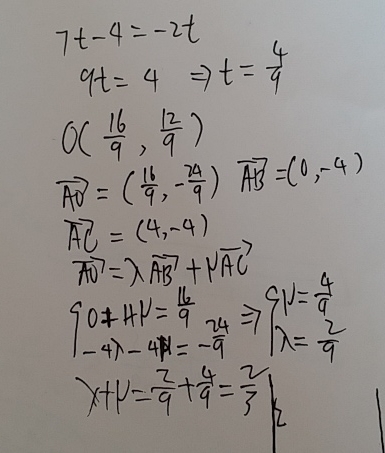 7t-4=-2t
9t=4 ⇒t=4/9
O(16/9, 12/9)
AO→=(16/9,-24/9) AB→=(0,-4)
AC→=(4,-4)
AO→=λAB→+μAC→
{0+4μ=16/9 ⇒{μ=4/9
{-4λ-4μ=-24/9 {λ=2/9
λ+μ=2/9+4/9=2/3